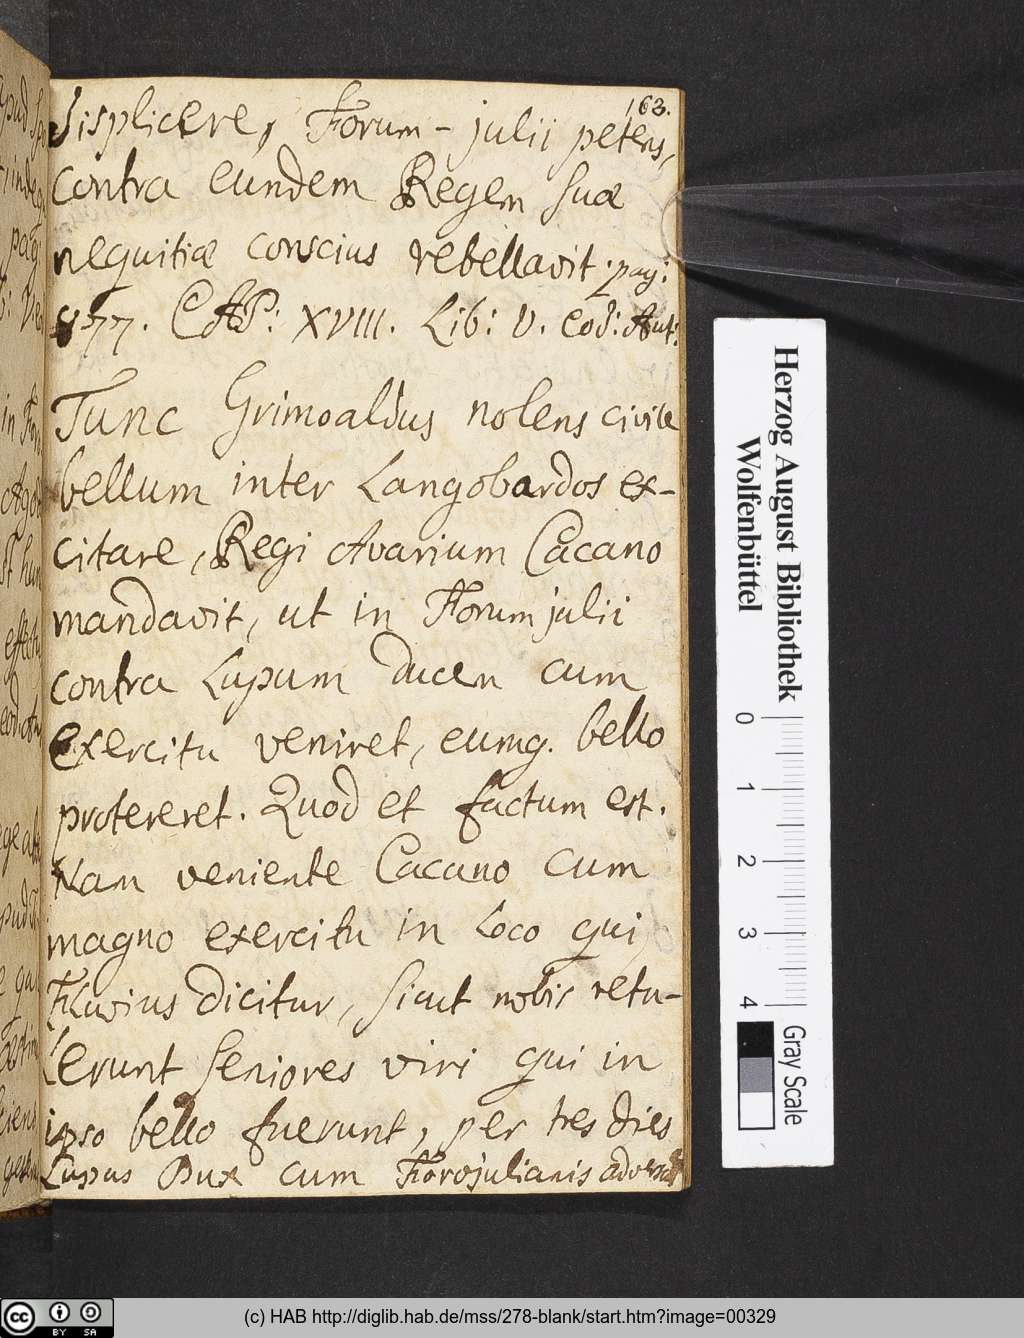 163.
displicere, Forum-julii petens,
contra eundem Regem suæ
nequitiæ conscius rebellavit. pag:
877. CAP: XVIII. Lib: V. eod: Aut:
Tunc Grimoaldus nolens civile
bellum inter Langobardos ex-
citare, Regi Avarium Cacano
mandavit, ut in Forum julii
contra Lupum ducem cum
exercitu veniret, eumq. bello
protereret. Quod et factum est.
Nam veniente Cacano cum
magno exercitu in Loco qui
Fluvius dicitur, sicut nobis retu-
lerunt seniores viri qui in
ipso bello fuerunt, per tres dies
Lupus Dux cum Forojulianis
Herzog August Bibliothek
Wolfenbüttel
0 1 2 3 4
Gray Scale
cc BY SA
(c) HAB http://diglib.hab.de/mss/278-blank/start.htm?image=00329